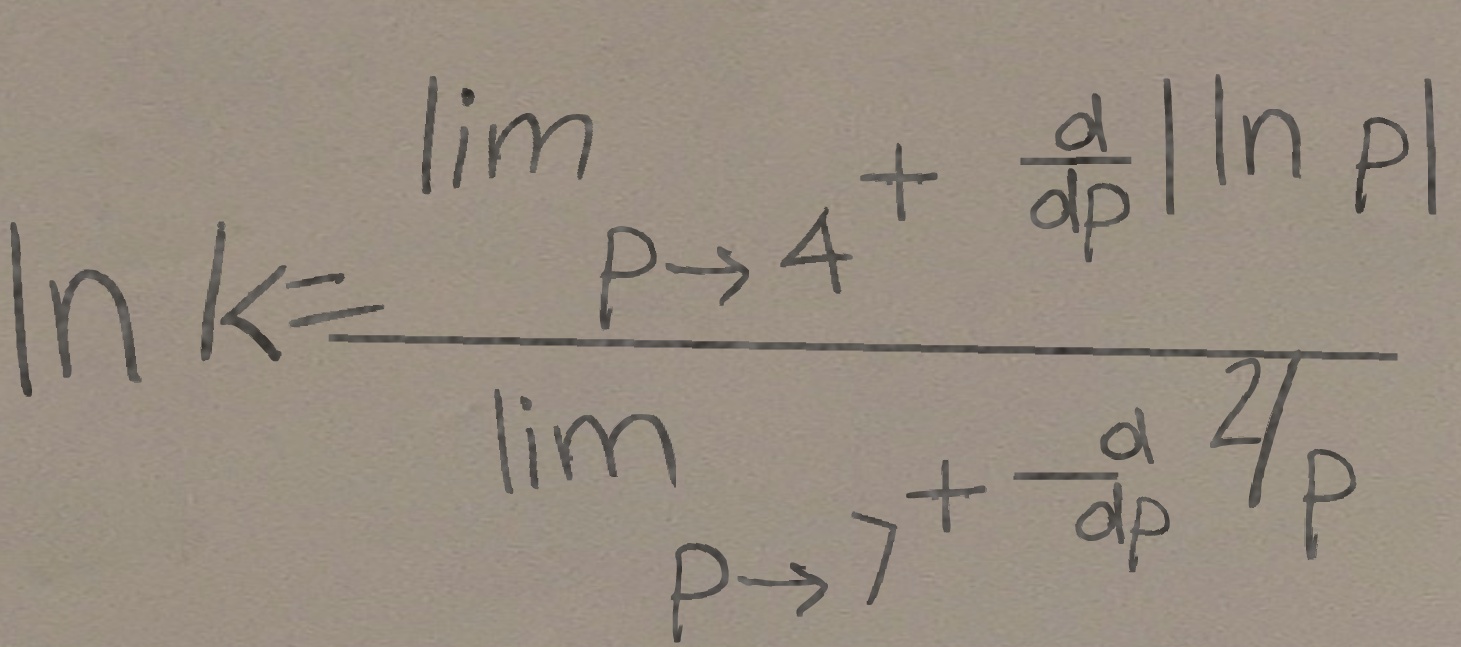 ln k = \frac{\lim_{p \to 4^+} \frac{d}{dp} |\ln p|}{\lim_{p \to 7^+} \frac{d}{dp} 2/p}